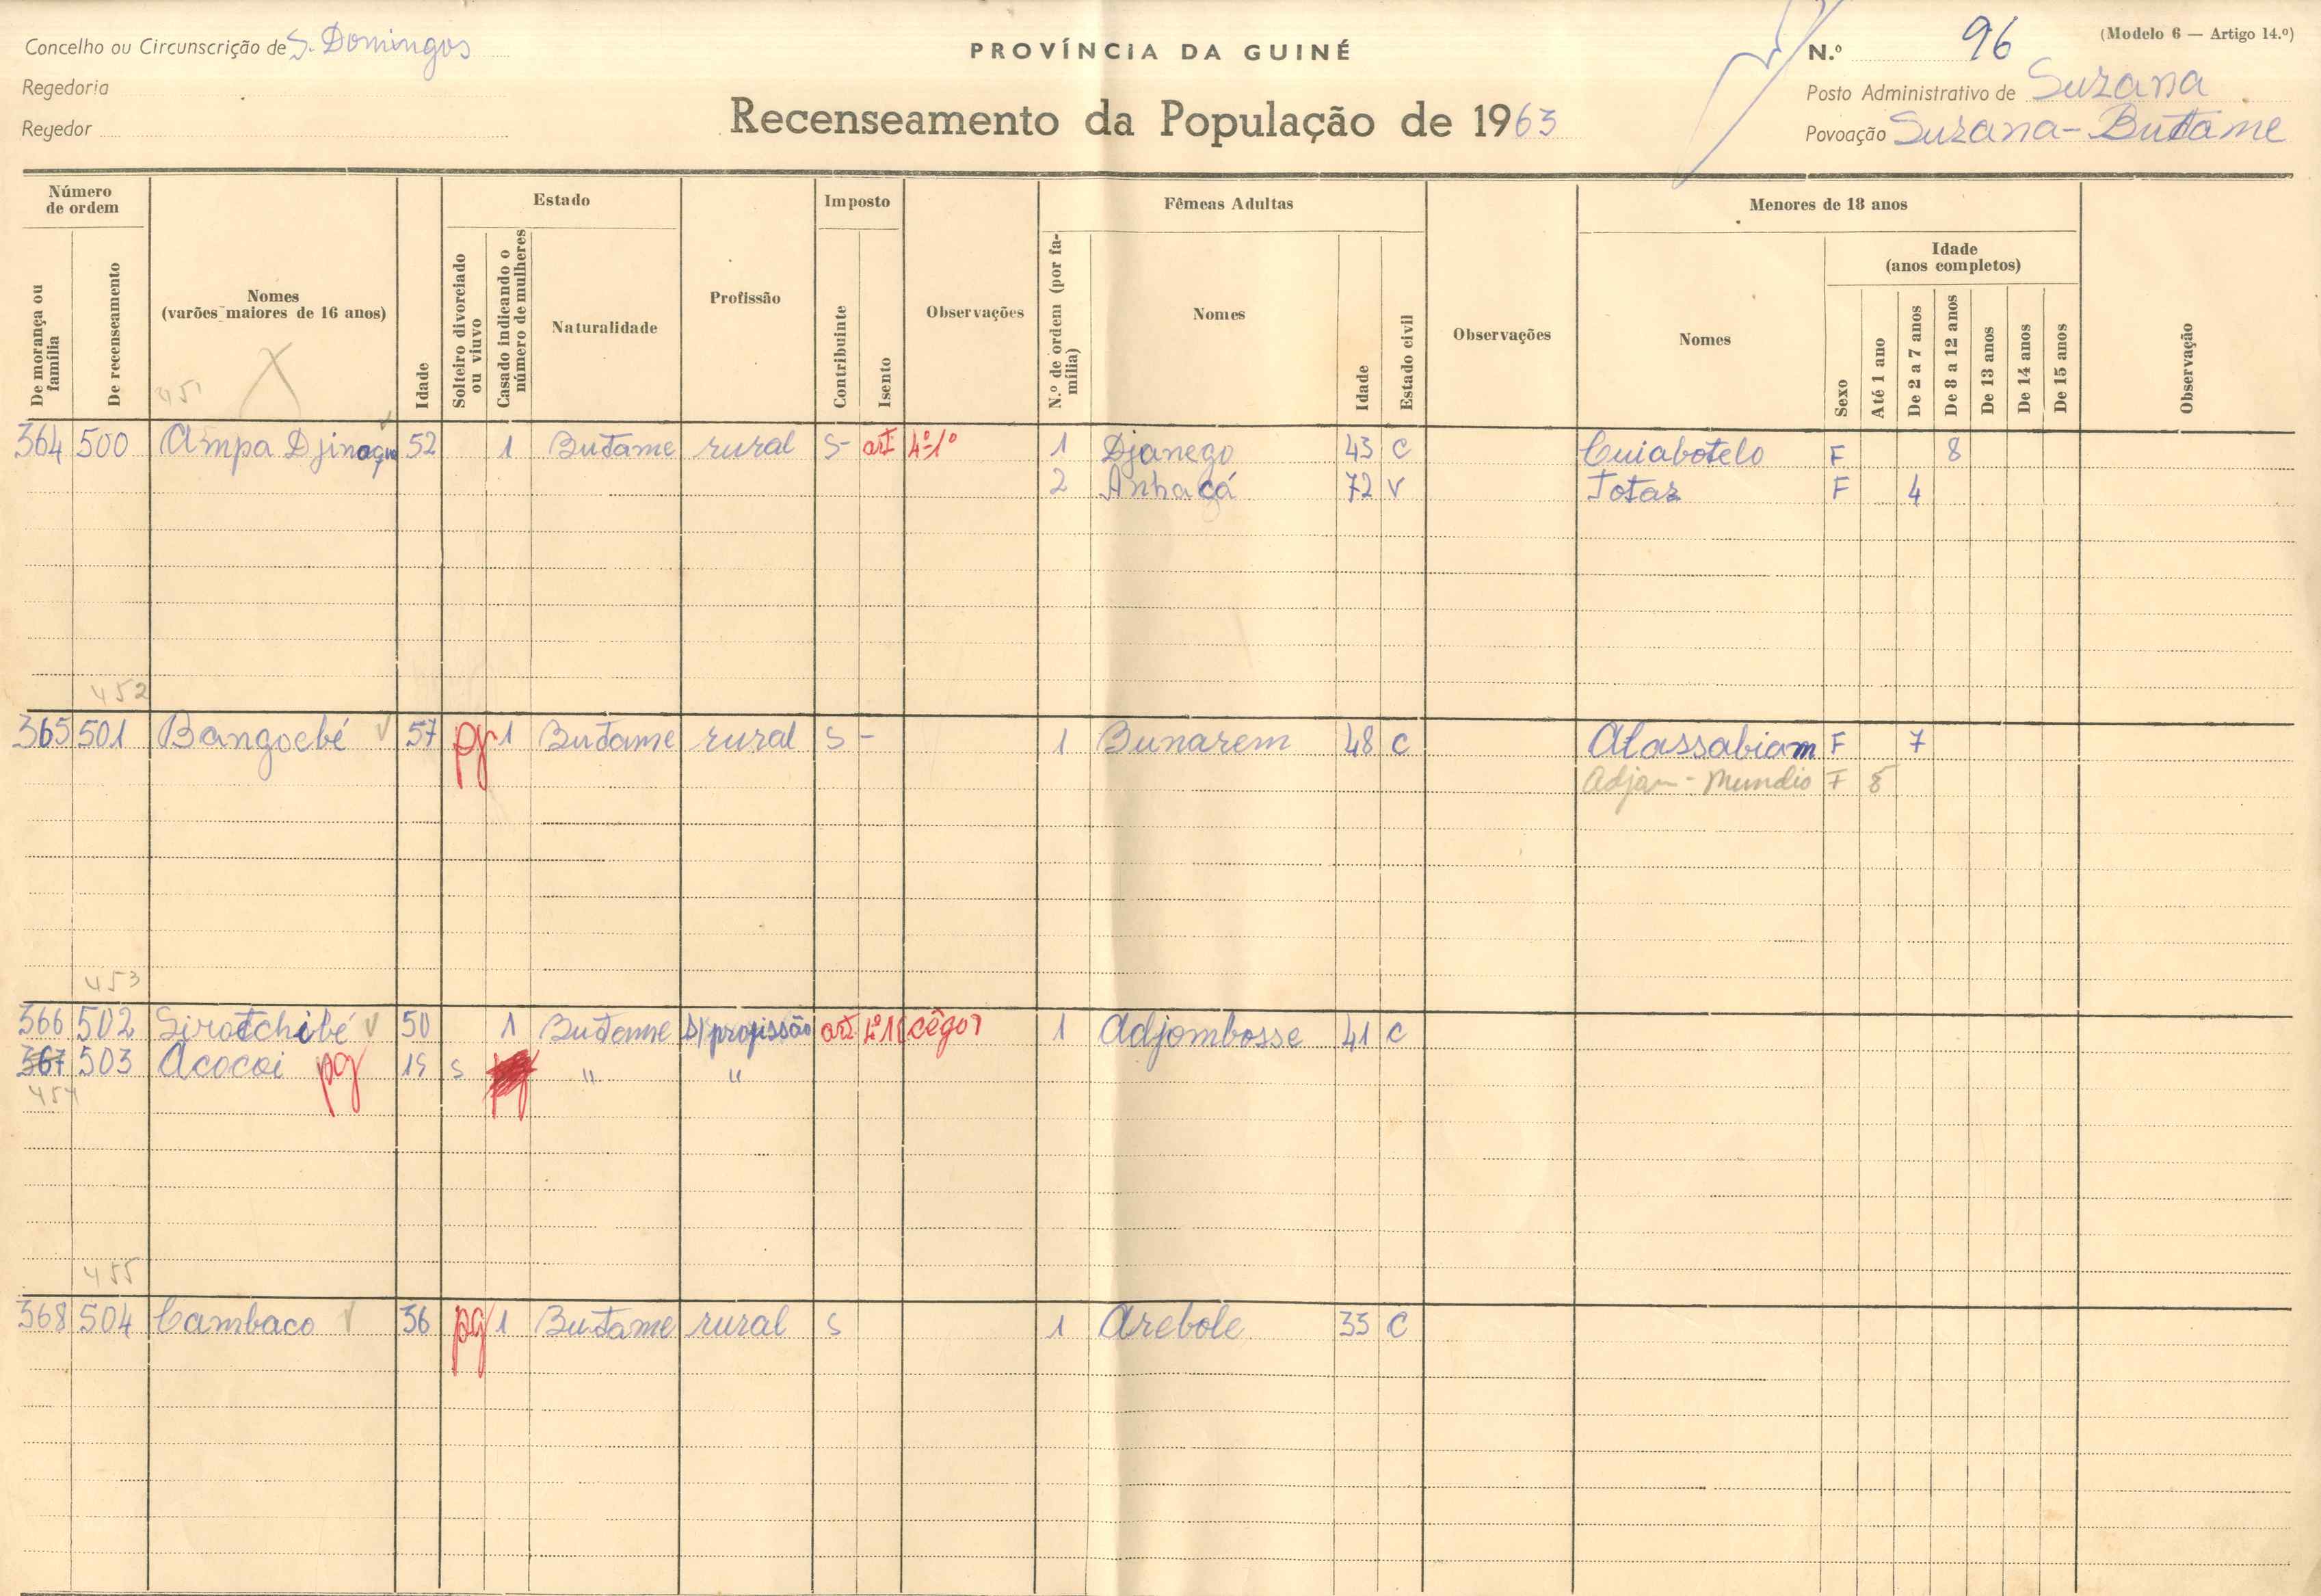 Concelho ou Circunscrição de S. Domingos
PROVÍNCIA DA GUINÉ
N.º 96
(Modelo 6 — Artigo 14.º)
Regedoria
Posto Administrativo de Suzana
Regedor
Recenseamento da População de 1963
Povoação Suzana-Butame
Número de ordem
Estado
Imposto
Fêmeas Adultas
Menores de 18 anos
De morança ou família
De recenseamento
Nomes (varões maiores de 16 anos)
Idade
Solteiro divorciado ou viuvo
Casado indicando o número de mulheres
Naturalidade
Profissão
Contribuinte
Isento
Observações
N.º de ordem (por família)
Nomes
Idade
Estado civil
Observações
Nomes
Sexo
Idade (anos completos)
Até 1 ano
De 2 a 7 anos
De 8 a 12 anos
De 13 anos
De 14 anos
De 15 anos
Observação
451
364 500 Ampa Djinaque 52 1 Butame rural S- art 4º-1º 1 Djanego 43 C Cuiabotelo F 8
2 Anhacá 72 V Totas F 4
452
365 501 Bangoebé 57 pg 1 Butame rural S - 1 Bunarem 48 C Alassabiam F 7
Adjam-Mundio F
453
366 502 Sirotchibé 50 1 Butame S/profissão art cêgo 1 Adjombosse 41 C
367 503 Acocoi pg 19 S " "
454
455
368 504 Cambaco 36 pg 1 Butame rural S 1 Arebole 35 C